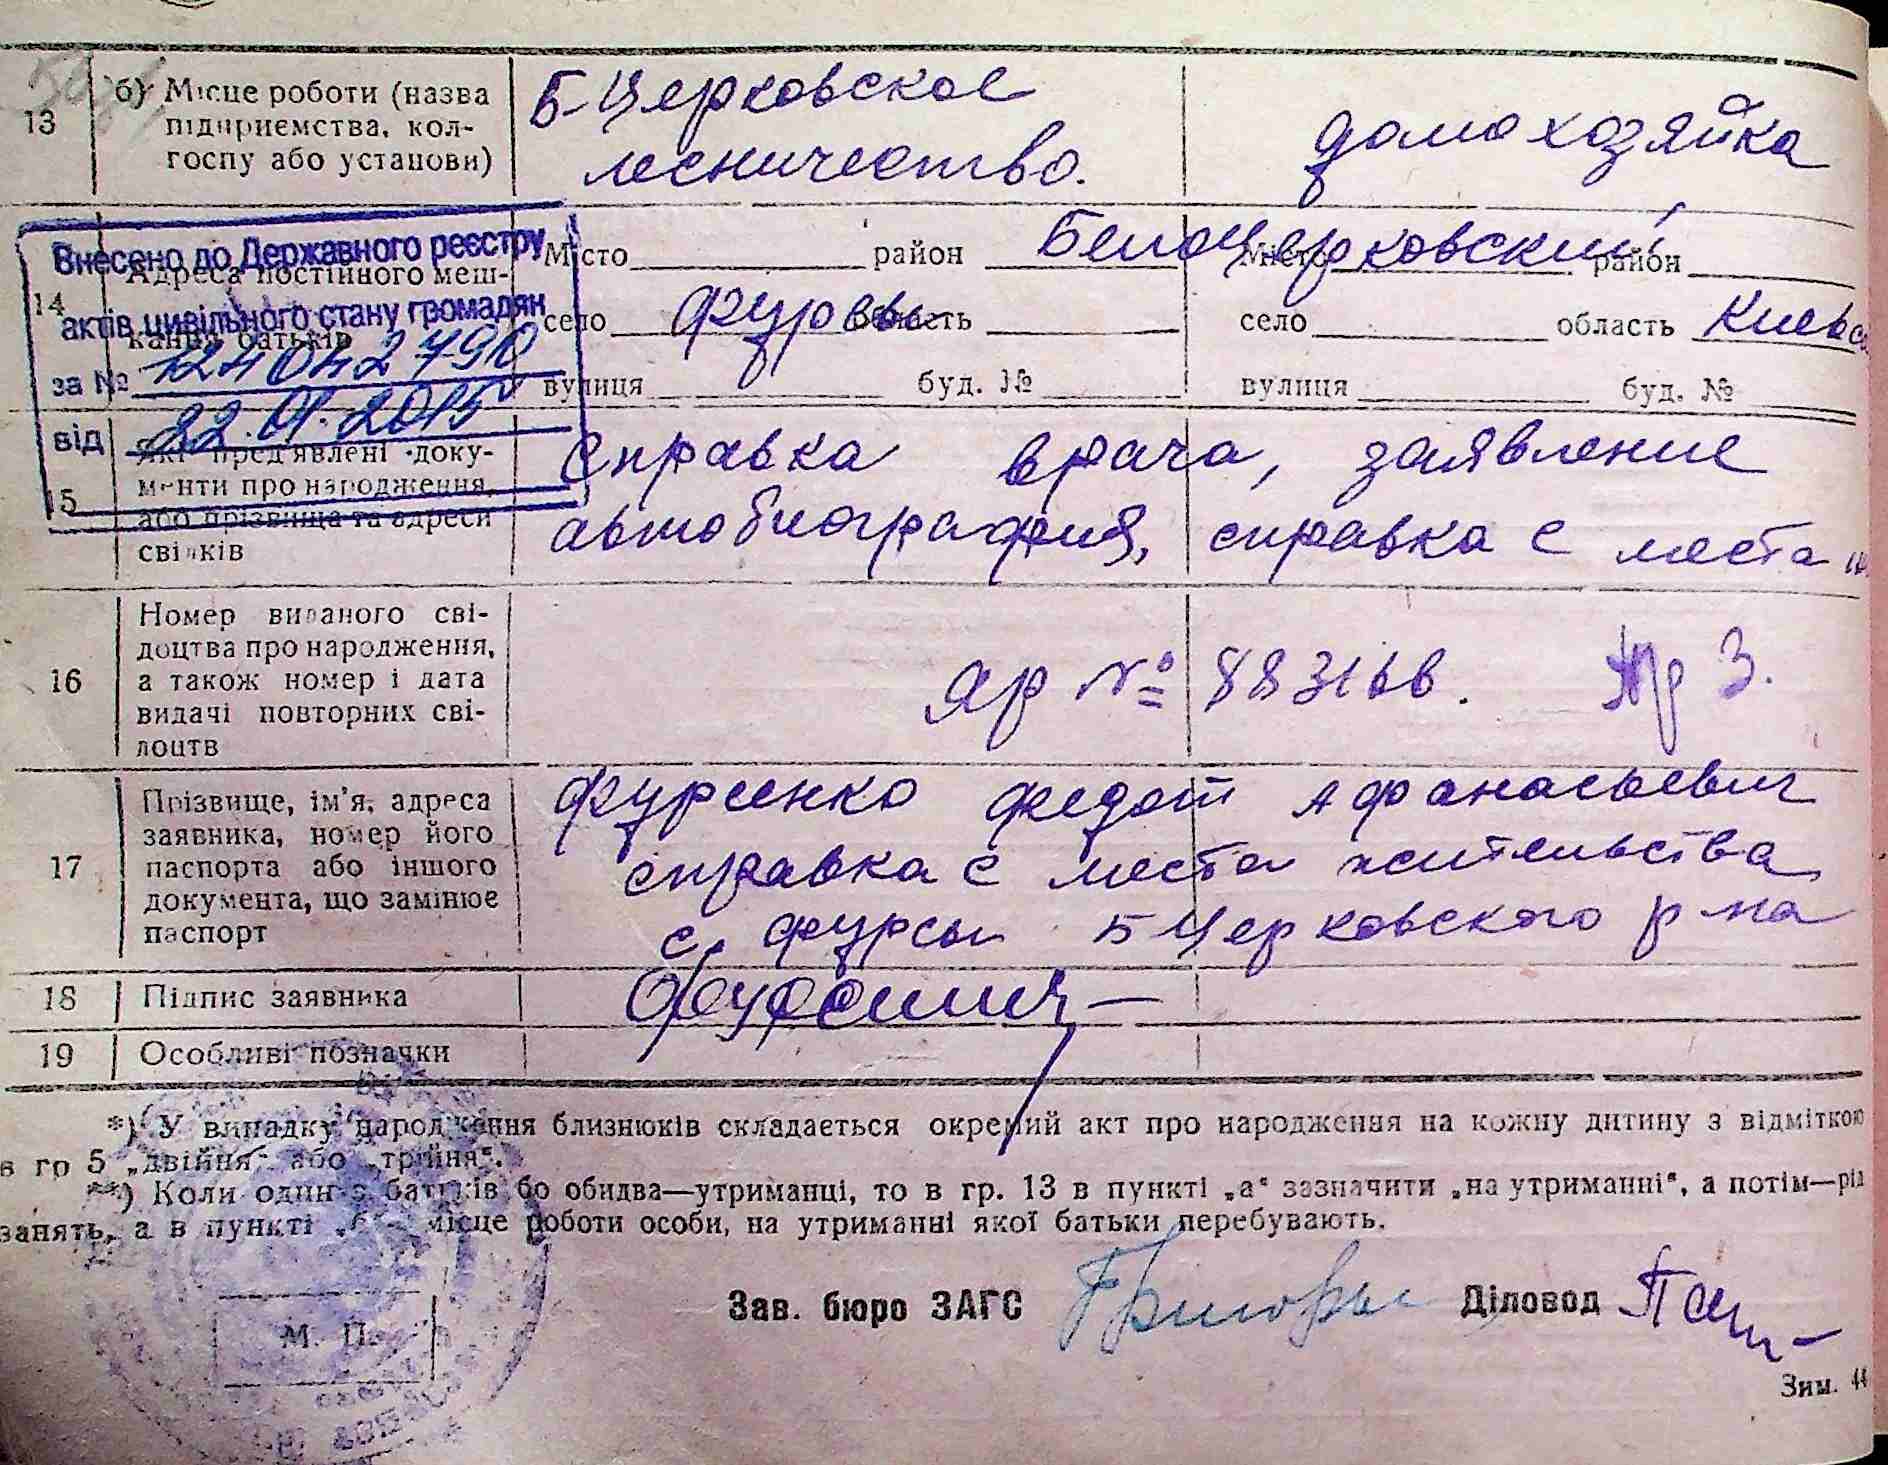 13 б) Місце роботи (назва підприємства, кол-госпу або установи)
Б-Церковское лесничество.
домохозяйка
Внесено до Державного реєстру
актів цивільного стану громадян
за № 124042790
від 22.01.2015
14 Адреса постійного меш-кання батьків
Місто район Белоцерковский Місто район
село Фурсы область село область Киевс
вулиця буд. № вулиця буд. №
15 Які пред'явлені доку-менти про народження, або прізвища та адреси свідків
Справка врача, заявление
автобиография, справка с места
16 Номер виданого сві-доцтва про народження, а також номер і дата видачі повторних сві-доцтв
яр № 883166.
17 Прізвище, ім'я, адреса заявника, номер його паспорта або іншого документа, що замінює паспорт
Фурсенко Федот Афанасьевич
справка с места жительства
с. Фурсы Б Церковского р-на
18 Підпис заявника
19 Особливі позначки
*) У випадку народження близнюків складається окремий акт про народження на кожну дитину з відміткою
в гр 5 „двійня“ або „трійня“.
**) Коли один з батьків або обидва—утриманці, то в гр. 13 в пункті „а“ зазначити „на утриманні“, а потім—рід
занять, а в пункті „б“—місце роботи особи, на утриманні якої батьки перебувають.
Зав. бюро ЗАГС Діловод
М. П.
Зим. 44